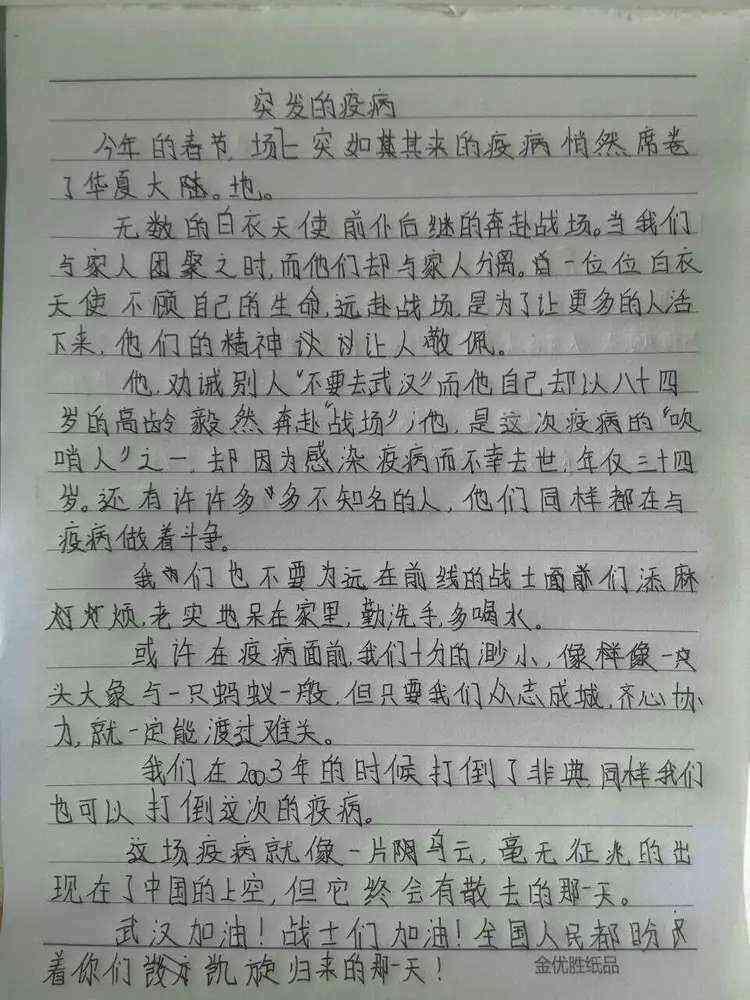 突发的疫病
今年的春节,场上突如其来的疫病悄然席卷
了华夏大陆。地。
无数的白衣天使前仆后继的奔赴战场。当我们
与家人团聚之时,而他们却与家人分离。一位位白衣
天使不顾自己的生命,远赴战场,是为了让更多的人活
下来,他们的精神让人敬佩。
他,劝诫别人“不要去武汉”而他自己却以八十四
岁的高龄毅然奔赴“战场”;他,是这次疫病的“吹
哨人”之一,却因为感染疫病而不幸去世,年仅三十四
岁。还有许许多多不知名的人,他们同样都在与
疫病做着斗争。
我们也不要为远在前线的战士面前们添麻
烦,老实地呆在家里,勤洗手,多喝水。
或许在疫病面前,我们十分的渺小,像样像一只
头大象与一只蚂蚁一般,但只要我们众志成城,齐心协
力,就一定能渡过难关。
我们在2003年的时候打倒了非典,同样我们
也可以打倒这次的疫病。
这场疫病就像一片阴乌云,毫无征兆的出
现在了中国的上空,但它终会有散去的那一天。
武汉加油!战士们加油!全国人民都盼
着你们凯旋归来的那一天!
金优胜纸品